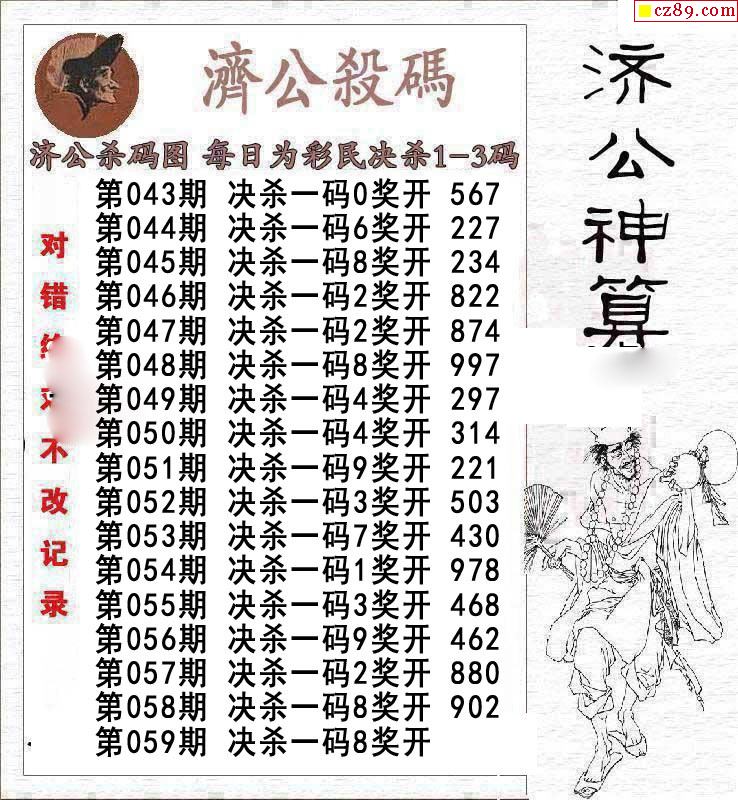 cz89.com
濟公殺碼
济公杀码图 每日为彩民决杀1-3码
第043期 决杀一码0奖开 567
第044期 决杀一码6奖开 227
第045期 决杀一码8奖开 234
第046期 决杀一码2奖开 822
第047期 决杀一码2奖开 874
第048期 决杀一码8奖开 997
第049期 决杀一码4奖开 297
第050期 决杀一码4奖开 314
第051期 决杀一码9奖开 221
第052期 决杀一码3奖开 503
第053期 决杀一码7奖开 430
第054期 决杀一码1奖开 978
第055期 决杀一码3奖开 468
第056期 决杀一码9奖开 462
第057期 决杀一码2奖开 880
第058期 决杀一码8奖开 902
第059期 决杀一码8奖开
对错不改记录
济公神算